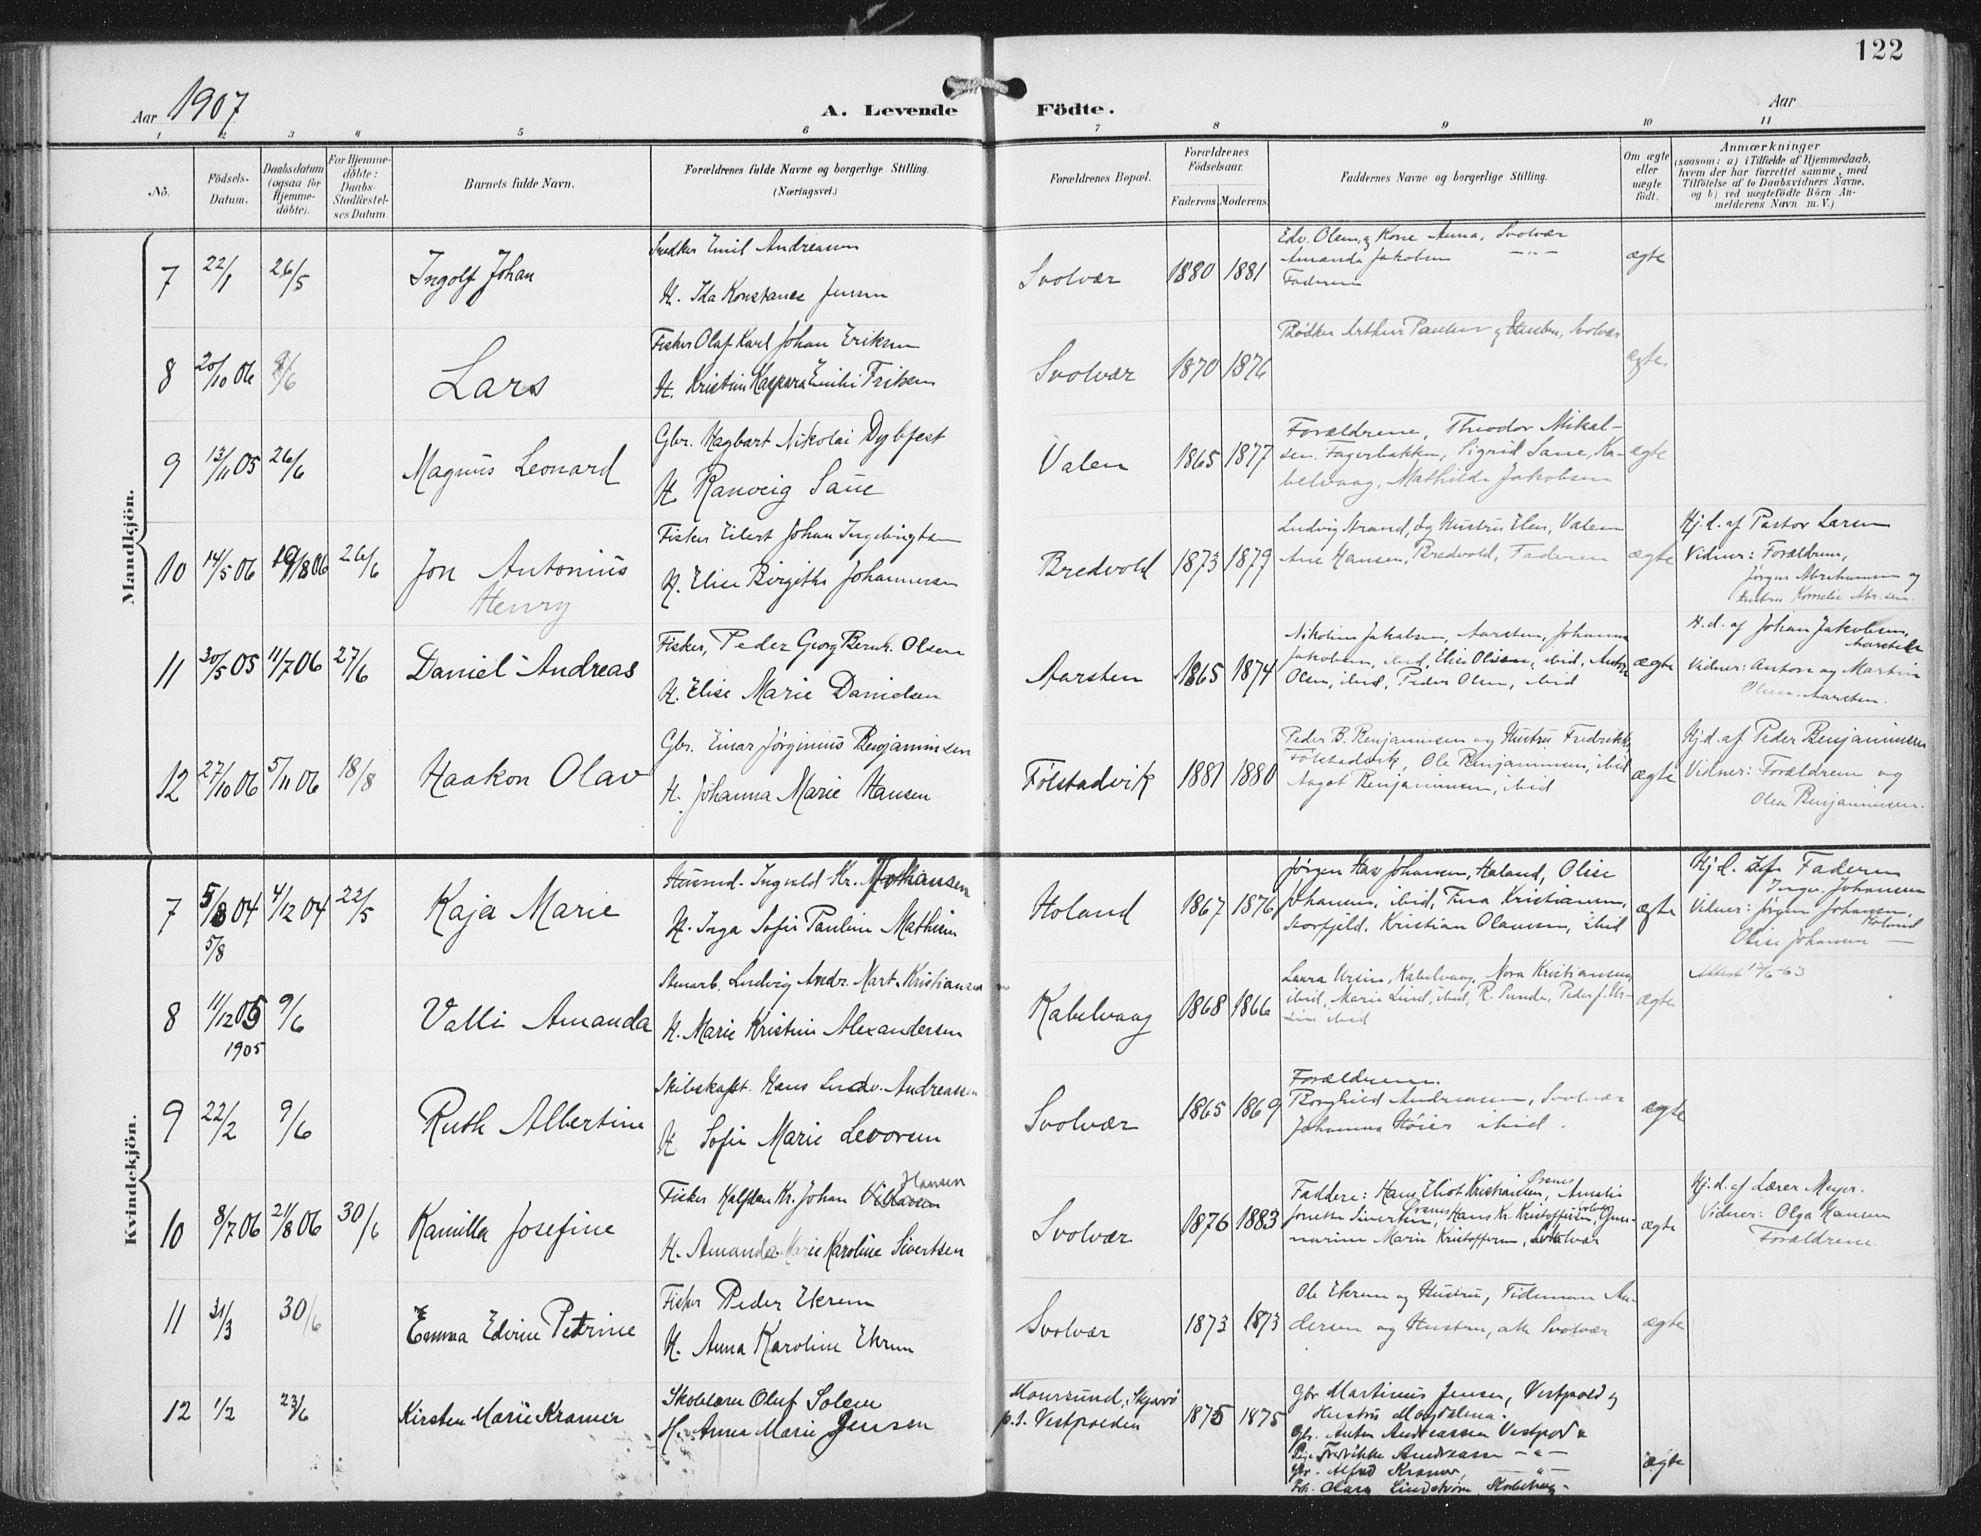 122
Aar 1907
A. Levende Födte.
Aar
1 2 3 4 5 6 7 8 9 10 11
No.
Födsels-Datum.
Daabsdatum (ogsaa for Hjemme-döbte).
For Hjemme-döbte: Daabs-Stadfæstel-ses Datum.
Barnets fulde Navn.
Forældrenes fulde Navne og borgerlige Stilling. (Næringsvei.)
Forældrenes Bopæl.
Forældrenes Födselsaar.
Faderens. Moderens.
Faddernes Navne og borgerlige Stilling.
Om ægte eller uægte födt.
Anmærkninger
(saasom: a) i Tilfælde af Hjemmedaab, hvem der har forrettet samme, med Tilföielse af to Daabsvidners Navne, og b) ved uægtefödte Börn An-melderens Navn m. V.)
Mandkjön.
7 22/1 26/5 Ingolf Johan
Snedker Emil Andreasen
H. Ida Konstance Jensen
Svolvær 1880 1881
Edv. Olsen og Kone Anna, Svolvær
Amanda Jakobsen -"-
Faderen
ægte
8 20/10 06 9/6 Lars
Fisker Olaf Karl Johan Eriksen
H. Kristine Kaspara Emilie
Svolvær 1870 1876
Bødker Arthur Paulsen og Hustru, Svolvær
ægte
9 13/11 05 26/6 Magnus Leonard
Gbr. Hagbart Nikolai Dybfest
H. Ranveig Saue
Valen 1865 1877
Forældrene, Theodor Mikal-
sen Fagerbakken, Sigrid Saue, Ka-
belvaag, Mathilde Jakobsen
ægte
10 14/5 06 19/8 06 26/6 Jon Antonius
Henry
Fisker Eilert Johan Ingebrigtsen
H. Elise Birgithe Johannessen
Bredvold 1873 1879
Ludvig Strand, og Hustru Elen, Valen
Arne Hansen, Bredvold, Faderen
ægte
Hj.d. af Pastor Larsen
Vidner: Forældrene,
Jørgen Abrahamsen og
Hustru Kornelie Abr.sen.
11 30/5 05 11/7 06 27/6 Daniel Andreas
Fisker, Peder Georg Bernh. Olsen
H. Elise Marie Danielsen
Aarsten 1865 1874
Nikoline Jakobsen, Aarsten, Johanna
Jakobsen, ibid, Elise Olsen, ibid, Anton
Olsen, ibid, Peder Olsen, ibid
ægte
H.d. af Johan Jakobsen,
Aarsten
Vidner: Anton og Martin
Olsen. Aarsten.
12 27/10 06 5/11 06 18/8 Haakon Olav
Gbr. Einar Jørginius Benjaminsen
H. Johanna Marie Hansen
Følstadvik 1881 1880
Peder B. Benjaminsen og Hustru Fredrikke,
Følstadvik, Ole Benjaminsen, ibid
Aagot Benjaminsen, ibid
ægte
Hj.d. af Peder Benjaminsen
Vidner: Forældrene og
Olea Benjaminsen.
Kvindekjön.
7 5/8 04 4/12 04 22/5 Kaja Marie
5/8
Husmd. Ingvald Kr. Johansen
H. Inga Sofie Pauline Mathisen
Holand 1867 1876
Jørgen Has Johansen, Holand, Olise
Johansen, ibid, Tina Kristiansen,
Storfjeld. Kristian Olaussen, ibid
ægte
Hj.d. af Faderen
Ingv. Johansen
Vidner: Jørgen Johansen,
Holand
Olise Johansen —
8 11/12 05 9/6 Valli Amanda
1905
Stenarb. Ludvig Andr. Mart. Kristiansen
H. Marie Kristine Alexandersen
Kabelvaag 1868 1866
Laura Ursin, Kabelvaag, Nora Kristiansen,
ibid, Marie Lind, ibid, R. Sunde, Peder J. Ur-
sin ibid
ægte
Attest 17/6-63
9 22/2 9/6 Ruth Albertine
Skibskapt. Hans Ludv. Andreassen
H. Sofie Marie Levorsen
Svolvær 1865 1869
Forældrene.
Borghild Andreassen, Svolvær
Johannes Höier ibid.
ægte
10 8/7 06 21/8 06 30/6 Kamilla Josefine
Fisker Halfdan Kr. Johan Hansen
H. Amanda Marie Karoline Sivertsen
Svolvær 1876 1883
Faddere: Hans Eliot Kristiansen, Amalie
Jonette Sivertsen, Hans Kr. Kristoffersen, Gun-
narine Marie Kristoffersen, Svolvær
ægte
Hj.d. af Lærer Meyer.
Vidner: Olga Hansen
Forældrene.
11 31/3 30/6 Emma Edvine Petrine
Fisker Peder Ekrem
H. Anna Karoline Ekrem
Svolvær 1873 1873
Ole Ekrem og Hustru, Tideman An-
dersen og Hustru, alle Svolvær
ægte
12 1/2 23/6 Kirsten Marie Kramer
Skolelærer Oluf Solem
H. Anna Marie Jensen
Maursund, Skjervø
p.t. Vestpolden 1875 1875
Gbr Martinus Jensen, Vestpold og
Hustru Magdalena.
Gbr. Anton Andreassen Vestpold
Pige Fredrikke Andreassen -"-
Gbr. Alfred Kramer, -"-
Frk. Olara Lindstrøm,
ægte